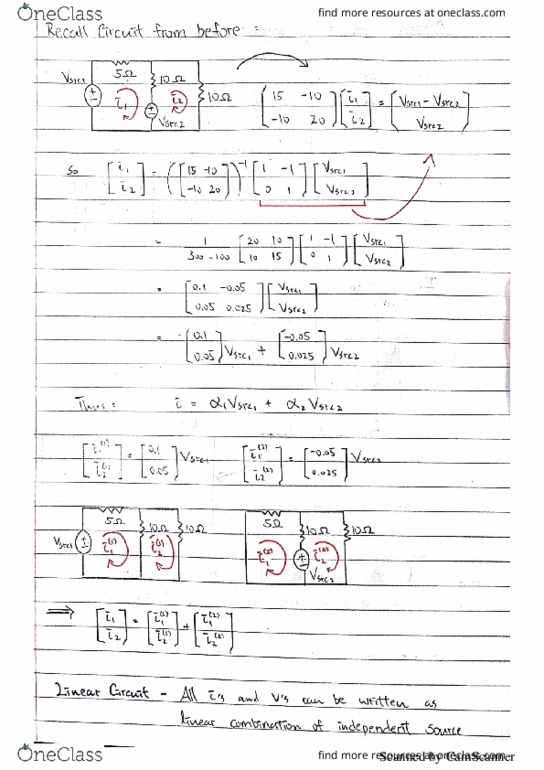 OneClass find more resources at oneclass.com
Recall Circuit from before :
Vsrc1 5Ω 10Ω 10Ω i1 i2 Vsrc2
[15 -10; -10 20] [i1; i2] = [Vsrc1 - Vsrc2; Vsrc2]
So [i1; i2] = ([15 -10; -10 20])^-1 [1 -1; 0 1] [Vsrc1; Vsrc2]
= 1/(300-100) [20 10; 10 15] [1 -1; 0 1] [Vsrc1; Vsrc2]
= [0.1 -0.05; 0.05 0.025] [Vsrc1; Vsrc2]
= [0.1; 0.05] Vsrc1 + [-0.05; 0.025] Vsrc2
i = α1Vsrc1 + α2Vsrc2
[i1^(1); i2^(1)] = [0.1; 0.05] Vsrc1 [i1^(2); i2^(2)] = [-0.05; 0.025] Vsrc2
Vsrc1 5Ω 10Ω 10Ω i1^(1) i2^(1) 5Ω 10Ω 10Ω i1^(2) i2^(2) Vsrc2
⟹ [i1; i2] = [i1^(1); i2^(1)] + [i1^(2); i2^(2)]
Linear Circuit - All i's and v's can be written as
linear combination of independent source
OneClass find more resources at oneclass.com
Scanned by CamScanner